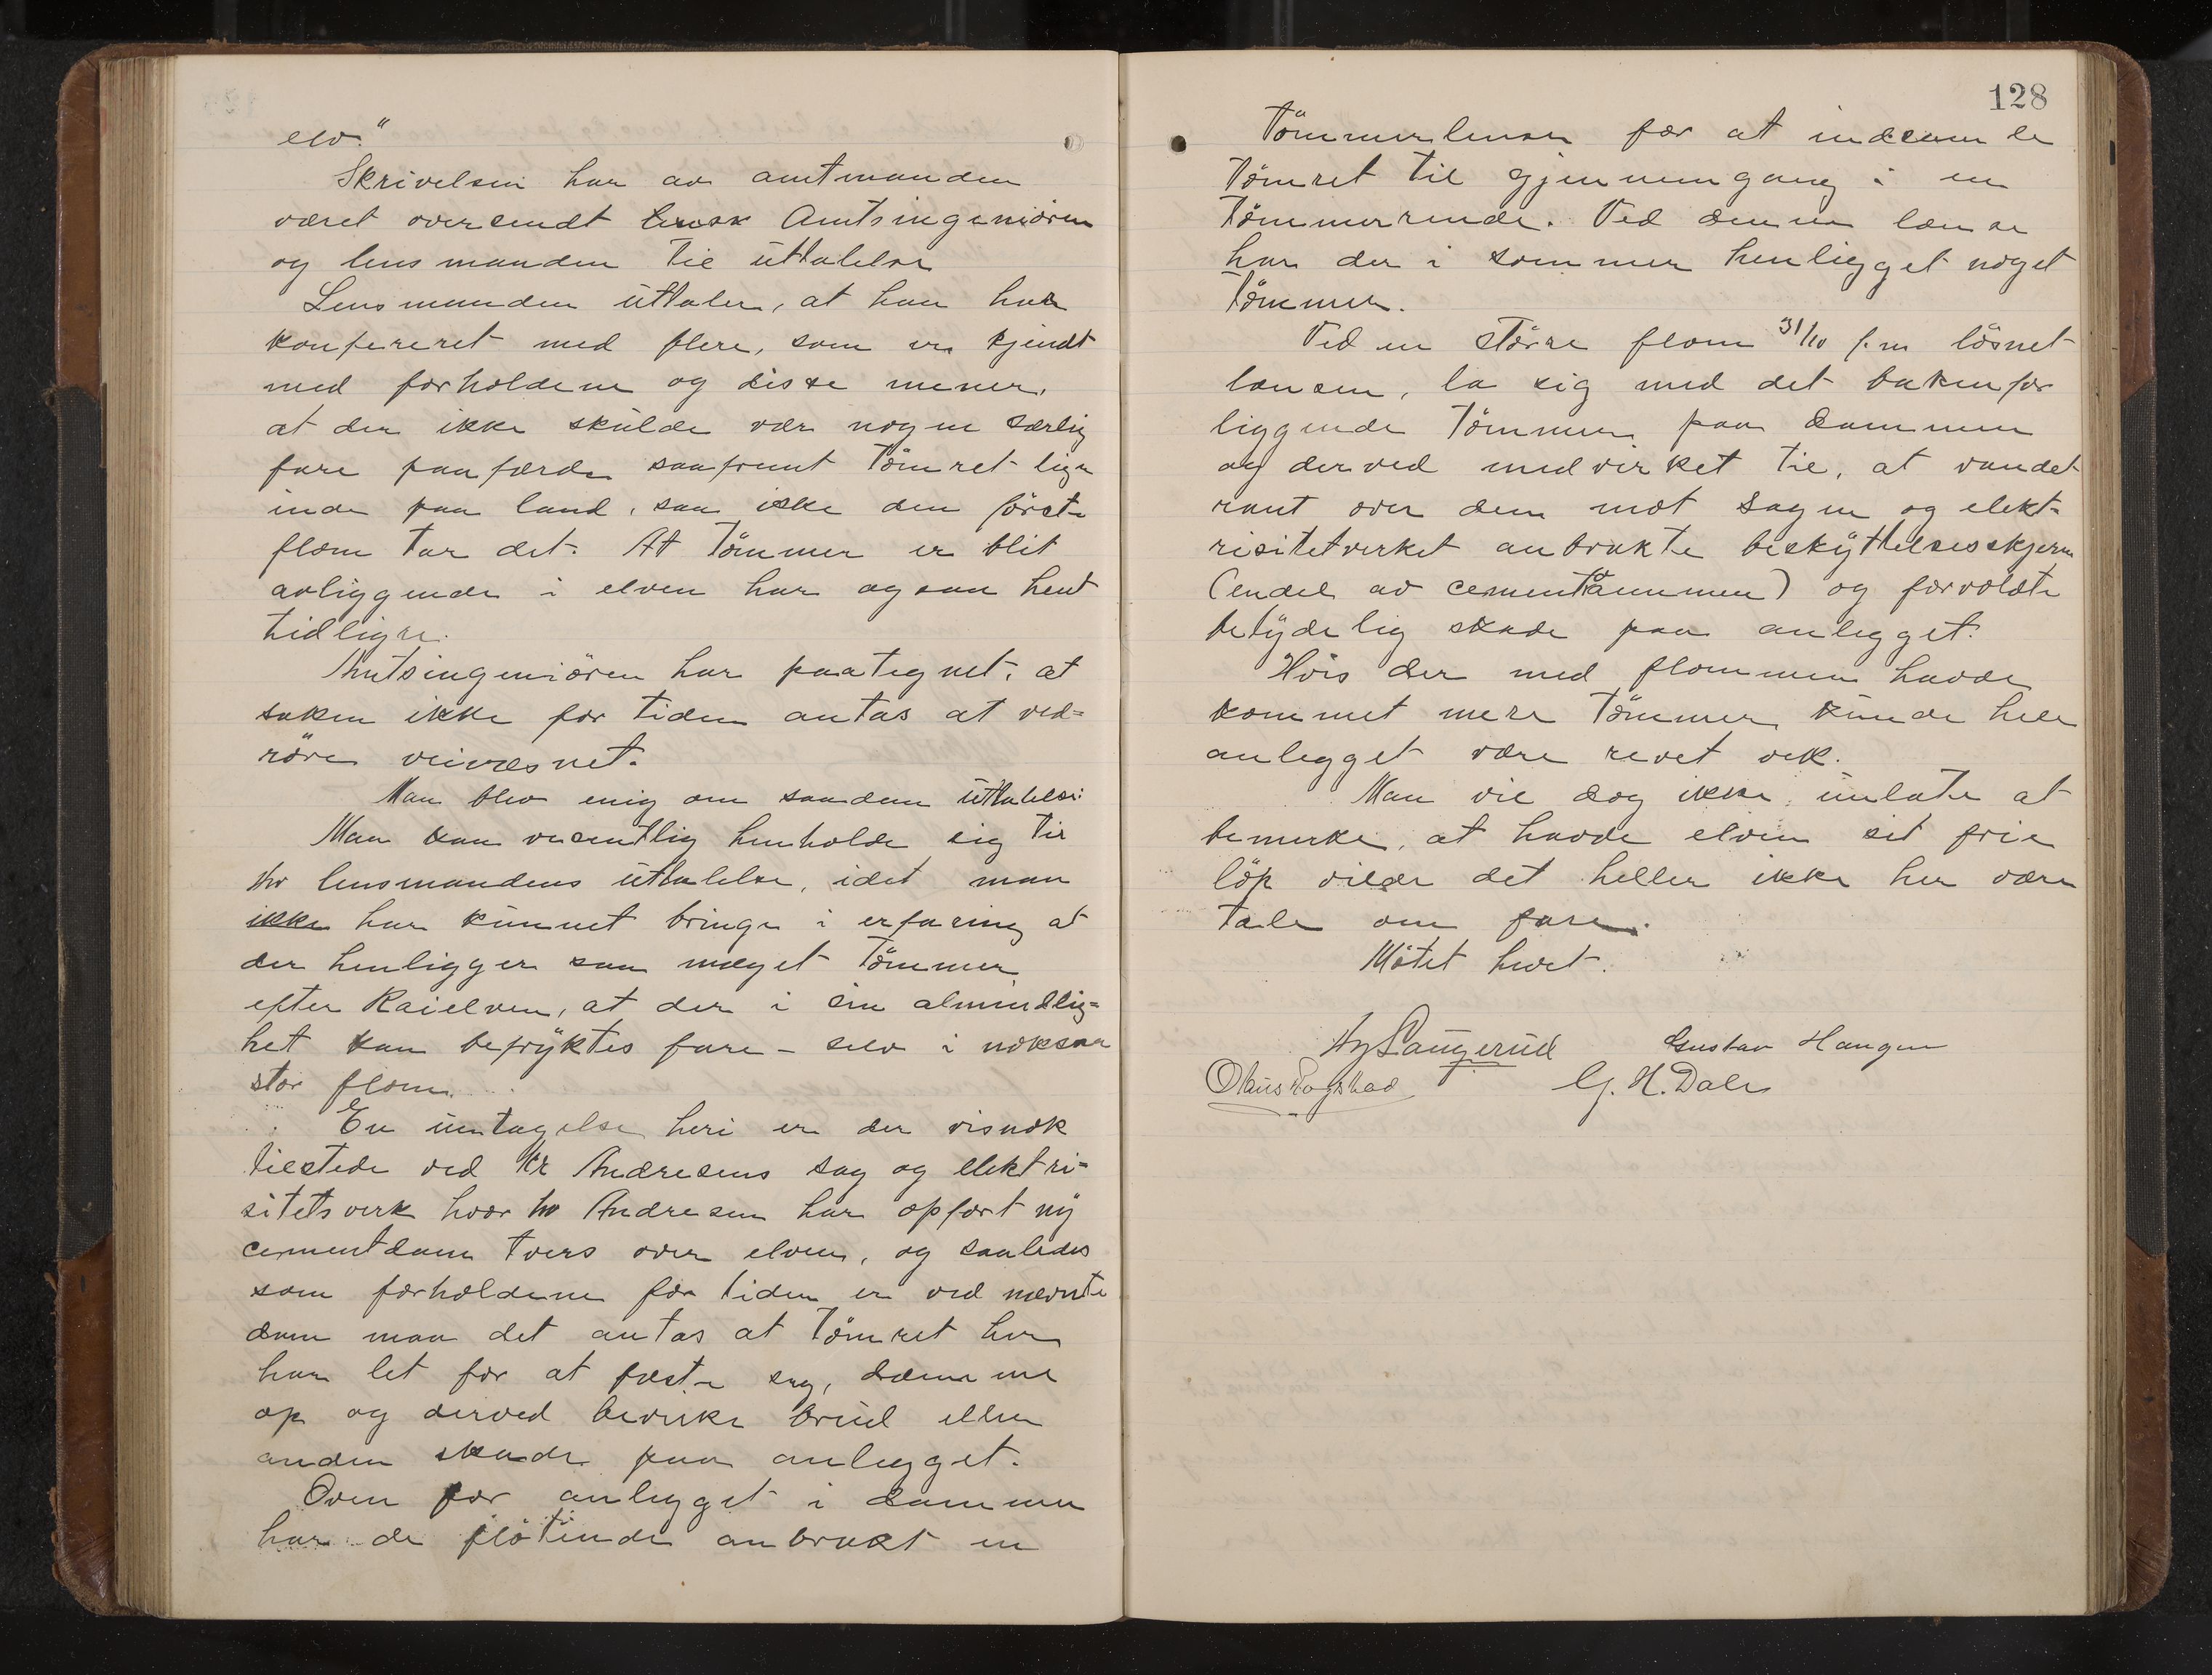 elv."
Skrivelsen har av amtmanden
været oversendt Amtsingeniören
og lensmanden til uttalelse
Lensmanden uttaler, at han har
konfereret med flere, som er kjendt
med forholdene og disse mener,
at der ikke skulde være nogen særlig
fare paafærde saafremt tömret ligg
inde paa land, saa ikke den förste
flom tar det. At tömmer er blit
avliggende i elven har ogsaa hent
tidligere.
Amtsingeniören har paategnet, at
saken ikke for tiden antas at ved=
röre veivæsnet.
Man blev enig om saadan uttalelse:
Man kan vesentlig henholde sig til
hr lensmandens uttalelse, idet man
ikke har kunnet bringe i erfaring at
der henligger saa meget tömmer
efter Raielven, at der i sin almindelig=
het kan befryktes fare – selv i noksaa
stor flom.
En undtagelse heri er der visnok
tilstede ved Kr Andresens sag og elektri=
sitetsverk hvor hr Andresen har opfört ny
cementdam tvers over elven, og saaledes
som forholdene for tiden er ved nævnte
dam maa det antas at tömret her
har let for at fæste seg, dæmme
op og derved bevirke brud eller
anden skade paa anlegget.
Oven for anlegget i dammen
har de flötende anbrakt en
128
Tömmerlense for at indsamle
tömret til gjennemgang i en
tömmerrende. Ved denne lænse
har der i sommer henligget noget
tömmer.
Ved en större flom 31/10 f.m lösnet
lænsen, la sig med det bakenfor
liggende tömmer paa dammen
og derved medvirket til, at vandet
rant over den mot sagen og elekt=
risitetverket anbrakte beskyttelsesskjerm
(endel av cementdammen) og forvoldte
betydelig skade paa anlegget.
Hvis der med flommen havde
kommet mere tömmer kunde hele
anlegget være revet vek.
Man vil dog ikke unlate at
bemerke, at havde elven sit frie
löp vilde det heller ikke her være
tale om fare.
Mötet hevet.
Gustav Haugen
Olaus Rogstad G. H. Dale